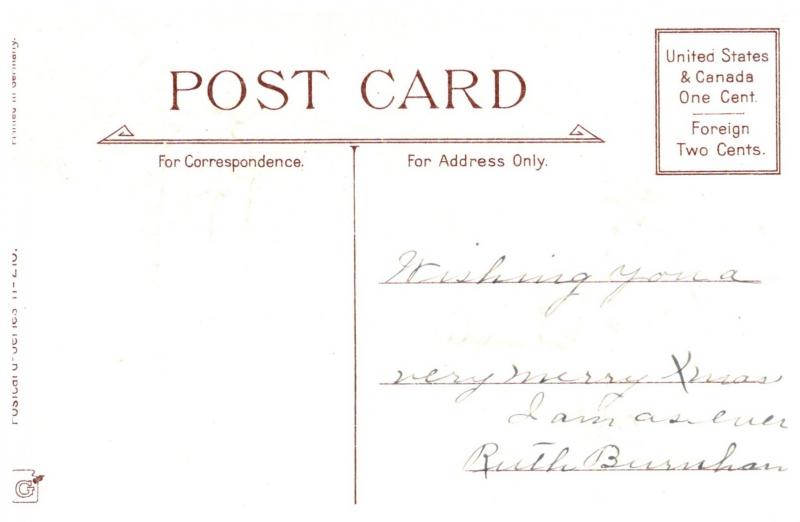 POST CARD
United States
& Canada
One Cent.
Foreign
Two Cents.
For Correspondence.
For Address Only.
Printed in Germany.
Postcard-Series
G
Wishing you a
very merry Xmas
I am as ever
Ruth Burnham